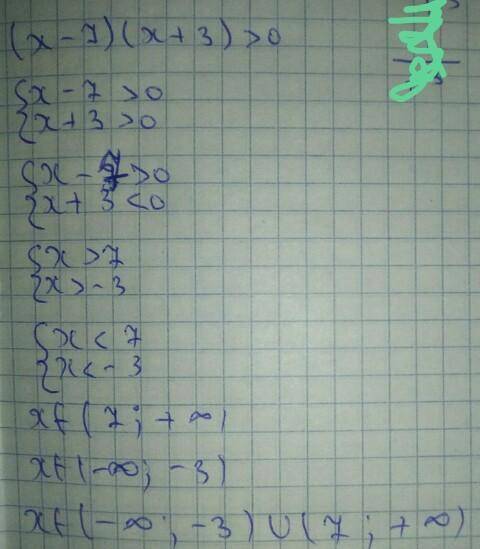 (x - 7)(x + 3) > 0
{x - 7 > 0
{x + 3 > 0
{x - 7 > 0
{x + 3 < 0
{x > 7
{x > - 3
{x < 7
{x < - 3
x ∈ (7; + ∞)
x ∈ (-∞; -3)
x ∈ (-∞; -3) ∪ (7; + ∞)